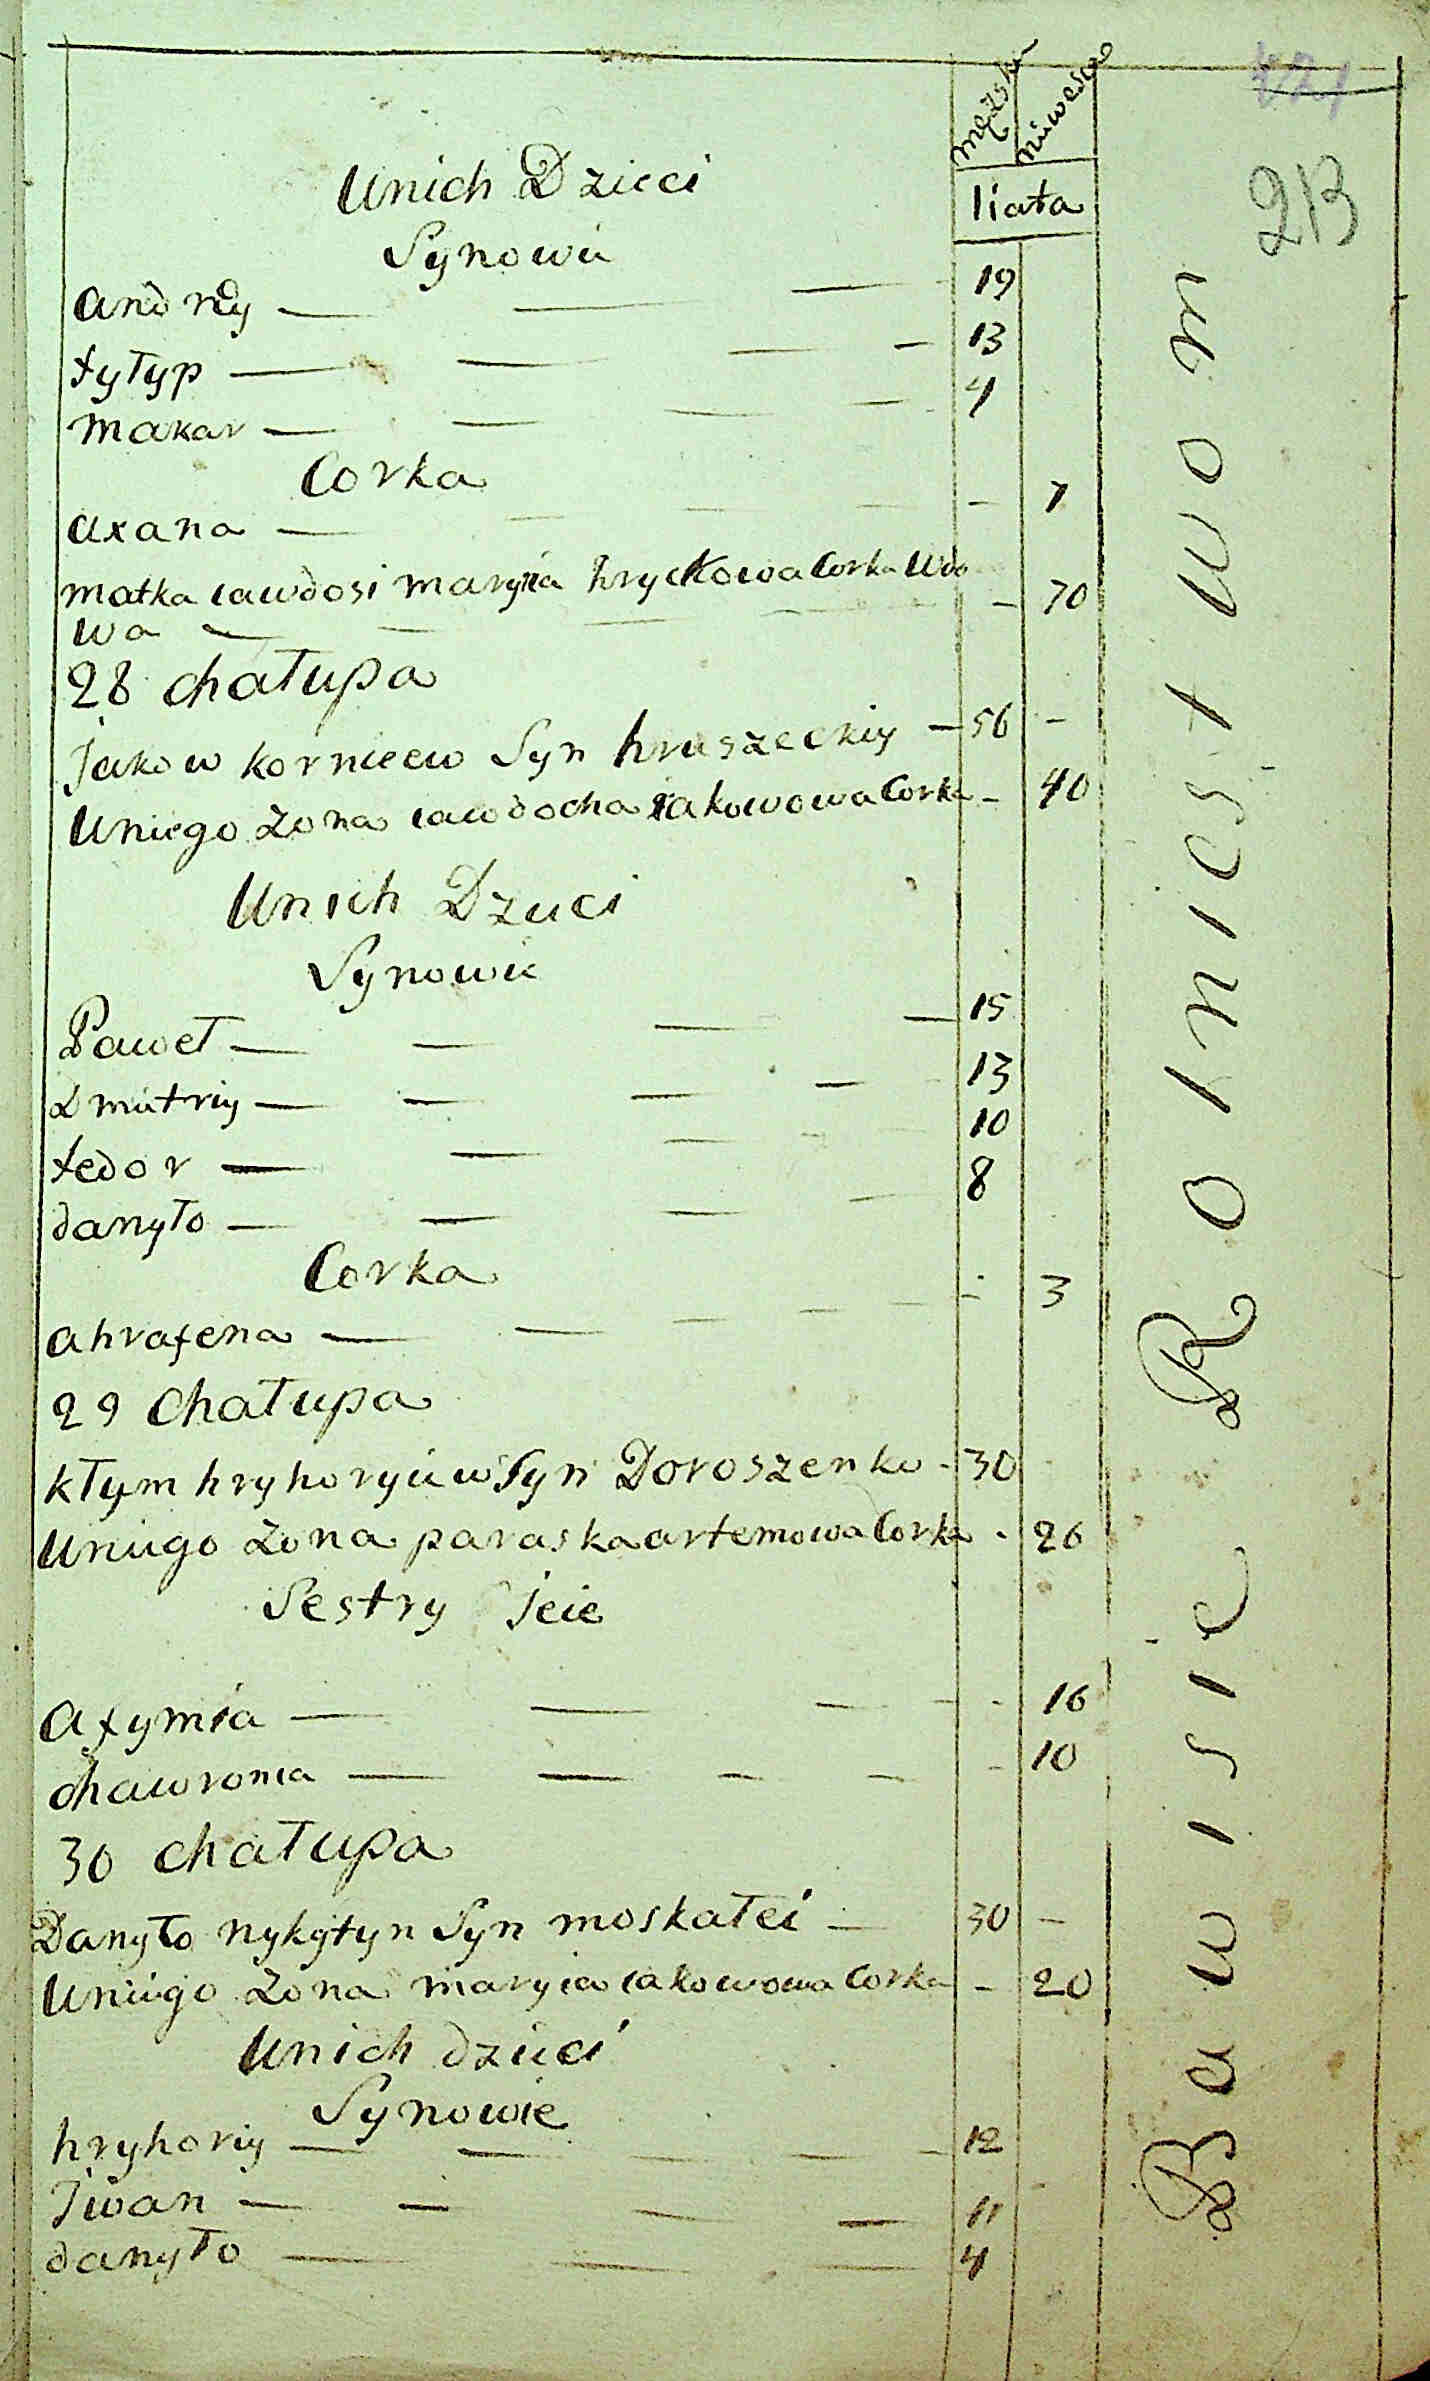 213
męzska niwesca
liata
Unich Dzieci
Synowie
andrey — — — 19
fytyp — — — — 13
makar — — — — 4
Corka
axana — — — — — 7
matka iawdosi maryia hryckowa Corka Wdo
wa — — — — — 70
28 chałupa
Jakow korneew Syn hruszeckiy — 56 —
Uniego zona iawdocha iakowowa Corka — 40
Unich Dzieci
Synowie
Paweł — — — — 15
Dmitriy — — — — 13
fedor — — — — 10
danyło — — — — 8
Corka
ahrafena — — — — — 3
29 chałupa
kłym hryhoryiew Syn Doroszenko - 30
Uniego zona paraska artemowa Corka - 26
Sestry Jeie
afymia — — — - 16
chawronia — — — — - 10
30 chałupa
Danyło nykytyn Syn moskałei — 30 —
Uniego zona maryia iakowowa Corka — 20
Unich dzieci
Synowie
hryhoriy — — — — 12
Jwan — — — — 11
danyło — — — 4
Bawisie Rolnicstwom